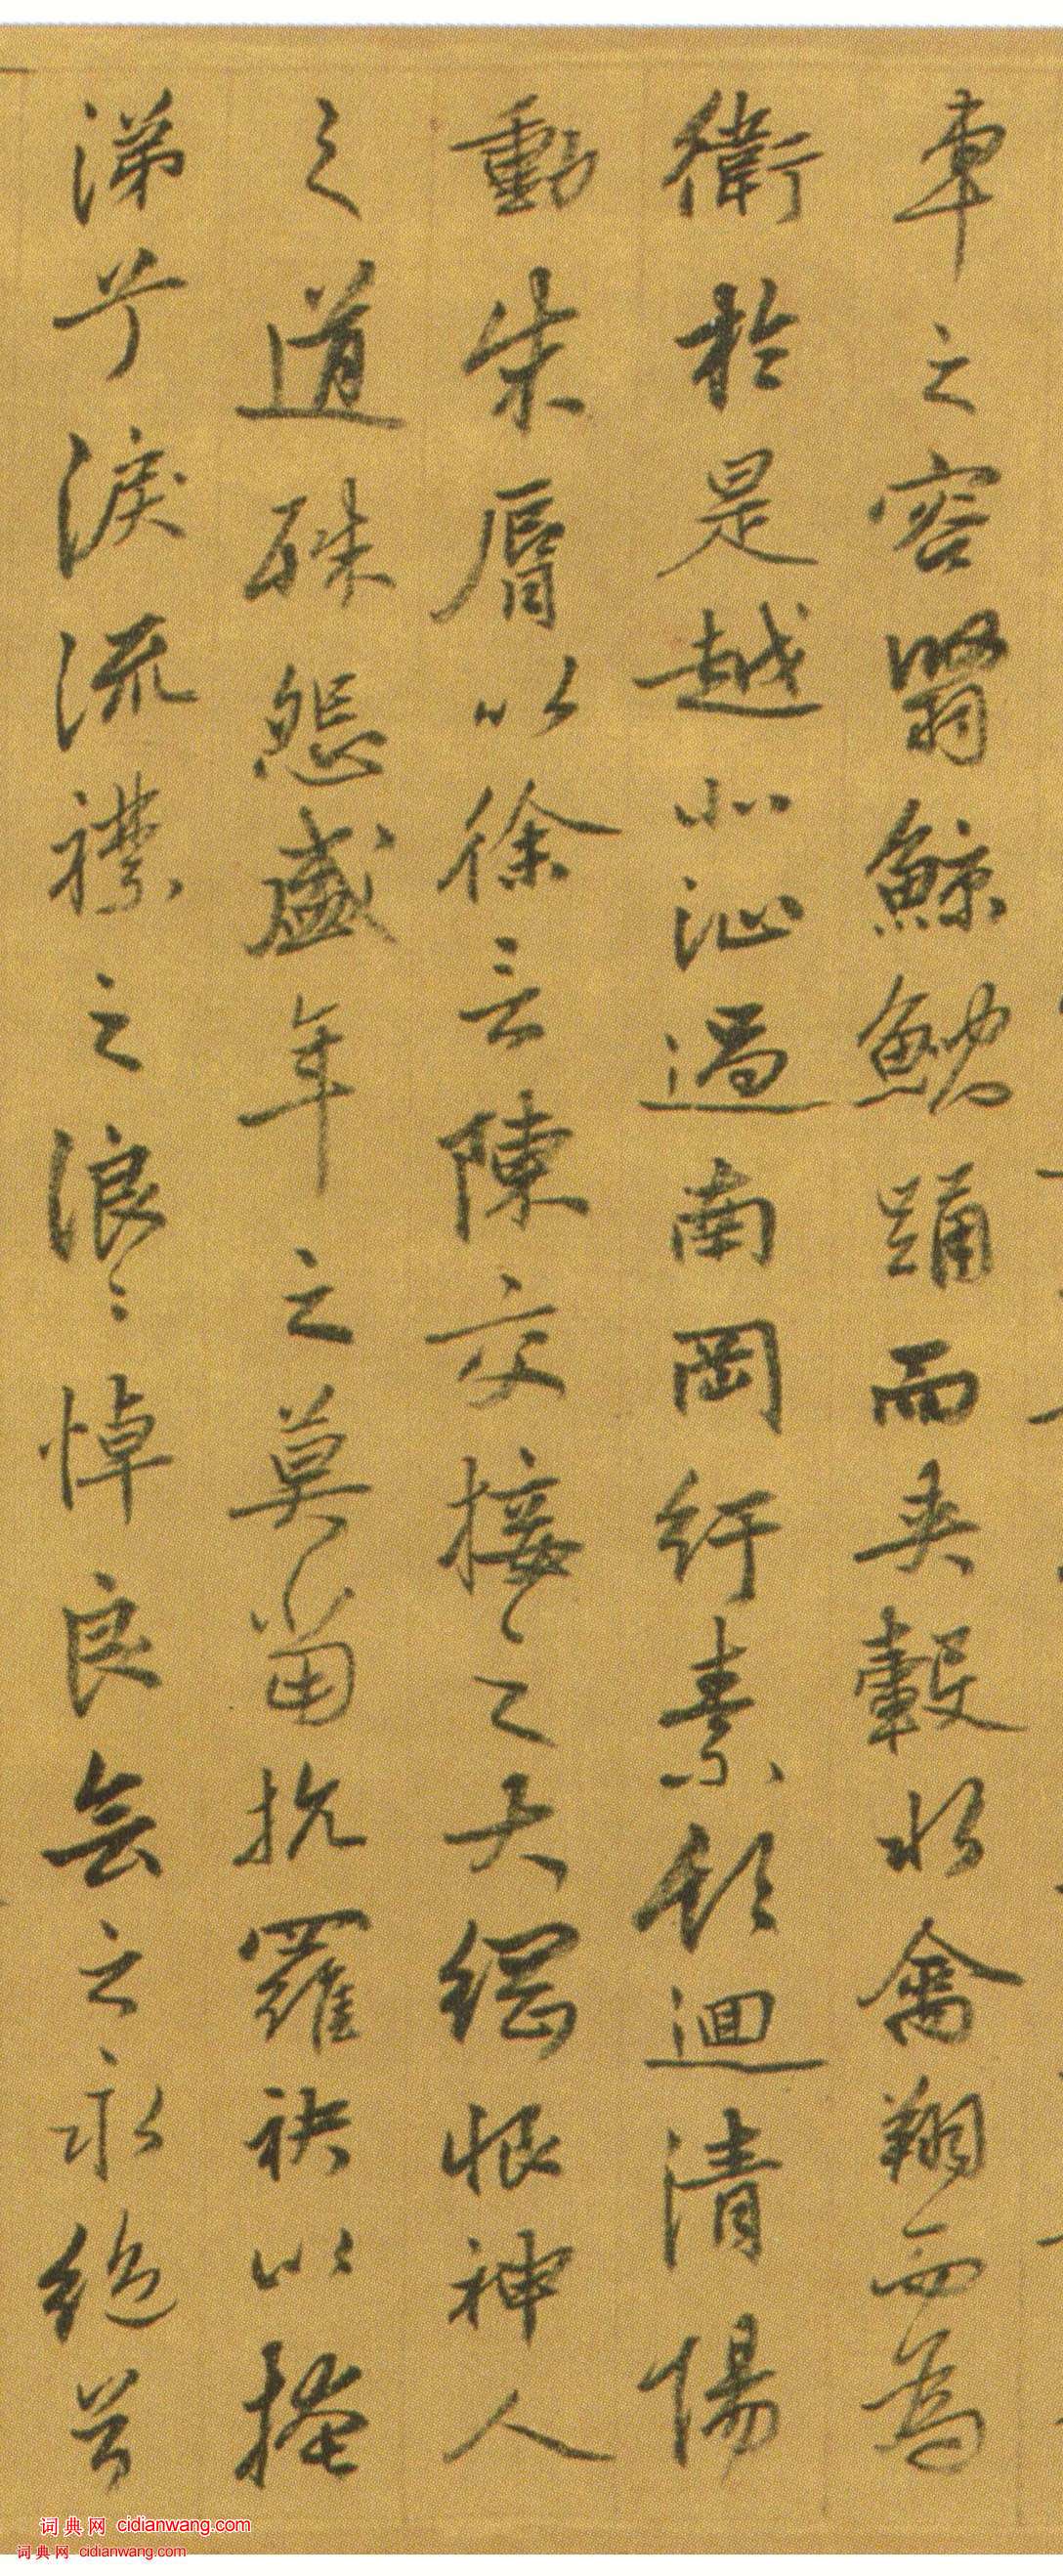 車之容翳鯨鯢踊而夾轂水禽翔而為
衛於是越北沚過南岡紆素領迴清陽
動朱脣以徐言陳交接之大綱恨神人
之道殊怨盛年之莫當抗羅袂以掩
涕兮淚流襟之浪〻悼良会之永絕兮
词典网 cidianwang.com
词典网 cidianwang.com